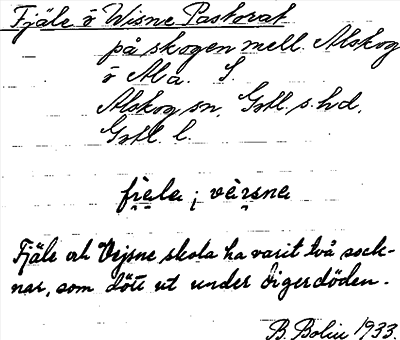 Fjäle o Wisne Pastorat
på skogen mell. Alskog
o Ala. S.
Alskog sn, Gotl. s. hd,
Gotl. l.
fiala ; vaisna
Fjäle och Vijsne skola ha varit två sock-
nar, som dött ut under digerdöden.
B. Bolin 1933.